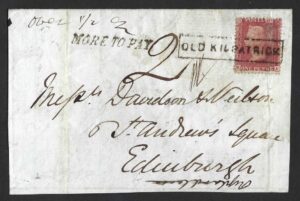 over 1/2 oz
MORE TO PAY
2
OLD KILPATRICK
ONE PENNY
Messrs Davidson & Neilson
St. Andrew's Square
Edinburgh